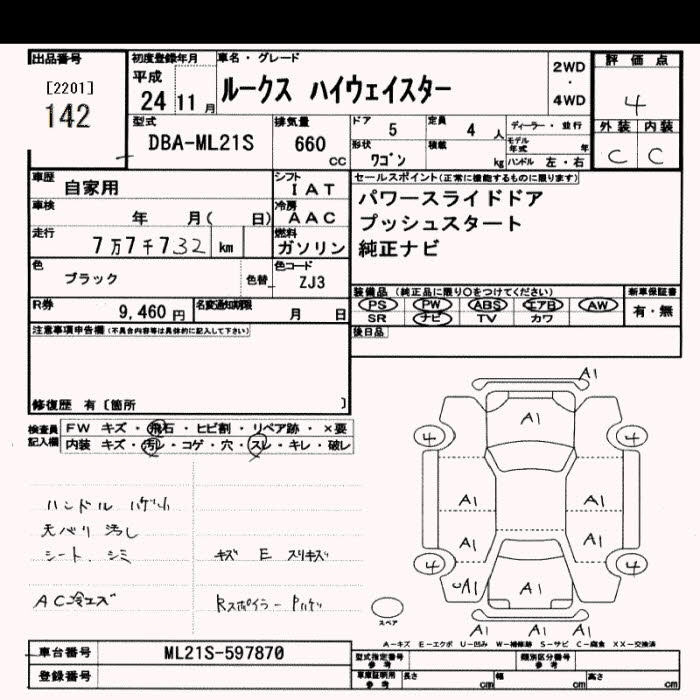 出品番号
[2201]
142
初度登録年月
平成
24 11 月
車名・グレード
ルークス ハイウェイスター
2WD
・
4WD
評価点
4
外装 内装
C C
型式
DBA-ML21S
排気量
660
CC
ドア
5
定員
4 人
形状
ワゴン
積載
kg
ディーラー・並行
モデル年式 年
ハンドル 左・右
車歴
自家用
シフト
IAT
車検
年 月( 日)
冷房
AAC
走行
7万7千732 km
燃料
ガソリン
色
ブラック
色替
色コード
ZJ3
R券
9,460 円
名変通知期限
月 日
セールスポイント(正常に機能するものに限ります)
パワースライドドア
プッシュスタート
純正ナビ
装備品(純正品に限り○をつけてください)
PS PW ABS エアB AW
SR ナビ TV カワ
新車保証書
有・無
後日品
注意事項申告欄(不具合内容等は具体的に記入して下さい)
修復歴 有〔箇所 〕
検査員
記入欄
FW キズ・飛石・ヒビ割・リペア跡・×要
内装 キズ・汚レ・コゲ・穴・スレ・キレ・破レ
ハンドル ハゲ小
天バリ 汚し
シート、シミ
キズ E スリキズ
AC冷エズ
Rスポイラー
A1
A1
4 4
A1 A1
A1 A1
4 4
A1 A1
A1 A1
スペア
A-キズ E-エクボ U-凹み W-補修跡 S-サビ C-腐食 XX-交換済
車台番号
ML21S-597870
登録番号
型式指定番号
参考
類別区分番号
参考
車庫証明用
参考
長さ cm
幅 cm
高さ cm